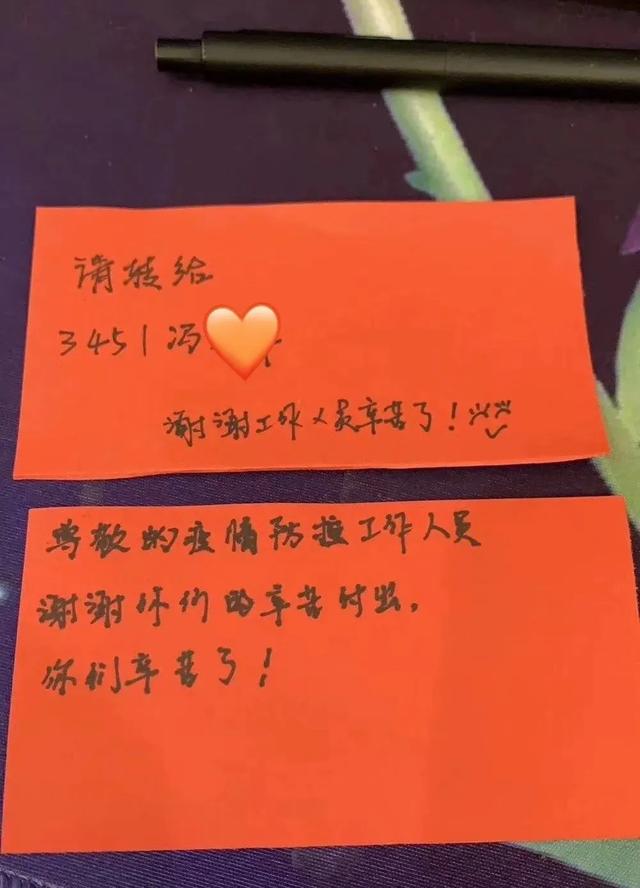 请转给
3451冯
谢谢工作人员辛苦了!
尊敬的疫情防控工作人员
谢谢你们的辛苦付出,
你们辛苦了!